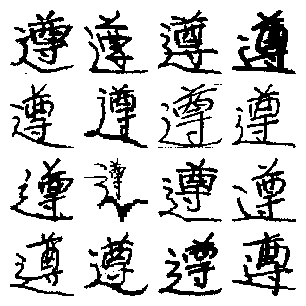 遵遵遵遵
遵遵遵遵
遵遵遵遵
遵遵遵遵